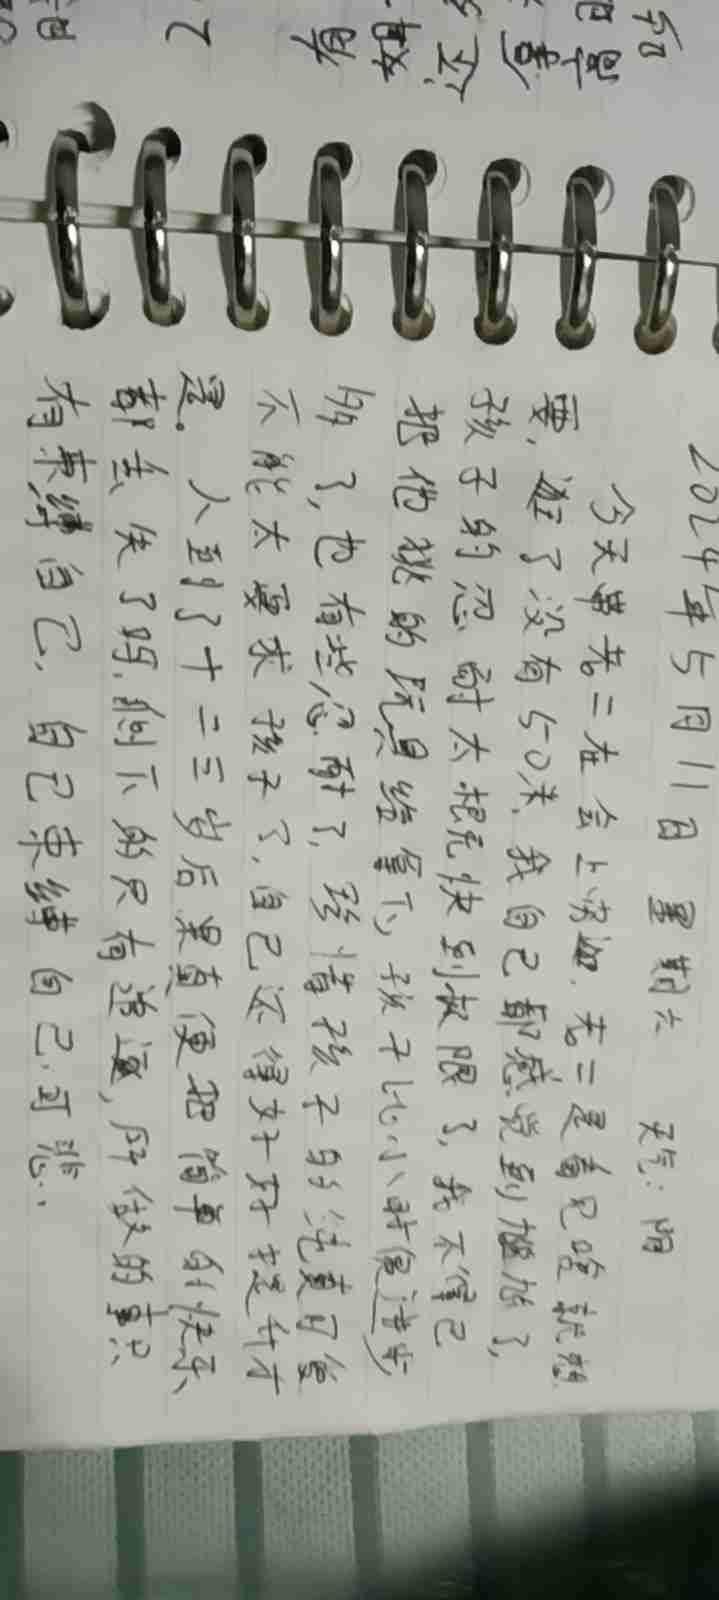 2024年5月11日 星期六 天气:阳
今天带老二在会上游逛.老二是看见啥就想
要,逛了没有50米,我自己都感觉到尴尬了,
孩子的忍耐太把快到极限了,我不得已
把他挑的玩具给拿下,孩子比小时候进步
多了,也有些忍耐了,珍惜孩子的纯真可爱
不能太要求孩子了,自己还得好好提升才
是。人到了十二三岁后果真便把简单的快乐
都丢失了吗,剩下的只有逍遥,所做的事只
有束缚自己,自己束缚自己,可悲..